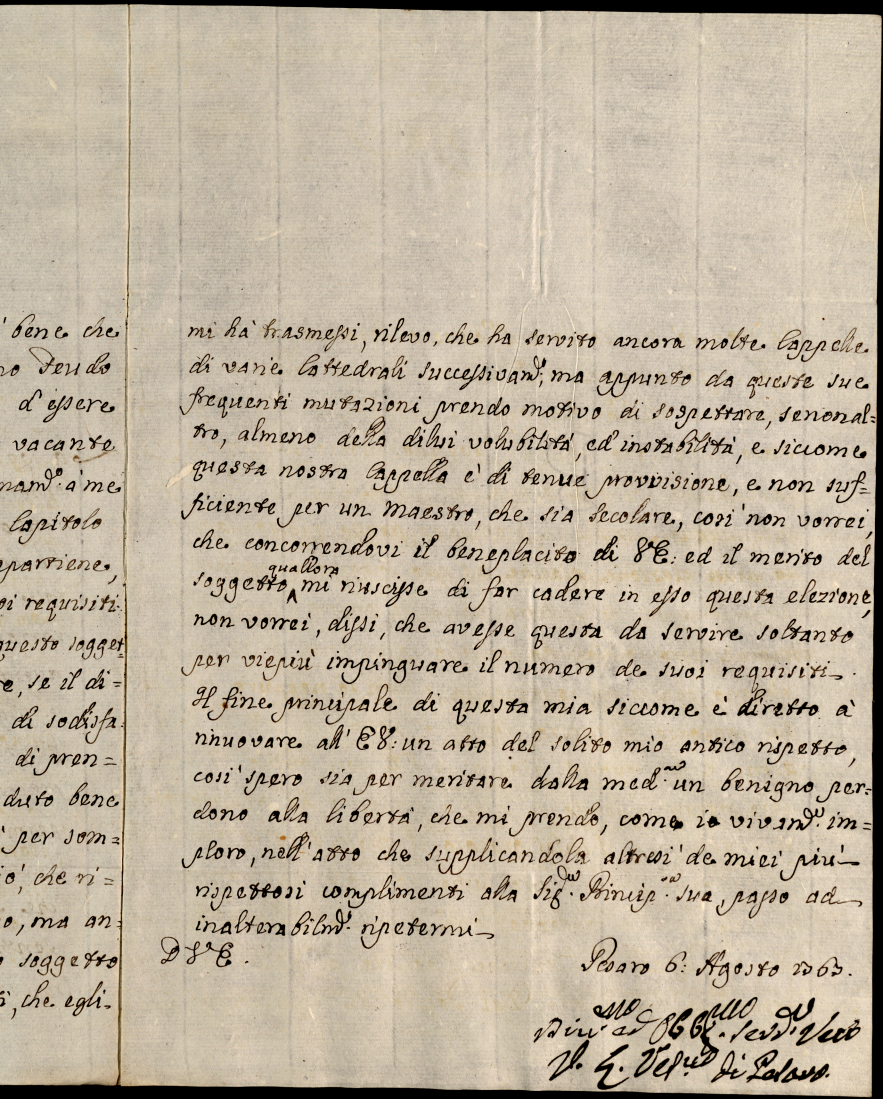 bene che
no Feudo
d'essere
vacante
namd.e à me
Capitolo
partiene,
oi requisiti.
questo sogget
re, se il di=
di sodisfa
di pren=
duto bene
per som=
io', che ri=
o, ma an=
soggetto
che egli
mi hà trasmessi, rilevo, che ha servito ancora molte Cappelle
di varie Cattedrali successivam.te; ma appunto da queste sue
frequenti mutazioni prendo motivo di sospettare, senonal=
tro, almeno della dilui volubilità, ed'instabilità, e siccome
questa nostra Cappella è di tenue provvisione, e non suf=
ficiente per un Maestro, che sia Secolare, cosi' non vorrei,
che concorrendovi il beneplacito di VE: ed il merito del
soggetto quallora mi riuscisse di far cadere in esso questa elezione,
non vorrei, dissi, che avesse questa da servire soltanto
per viepiù impinguare il numero de suoi requisiti.
Il fine principale di questa mia siccome è diretto à
rinuovare all' EV: un atto del solito mio antico rispetto,
cosi' spero sia per meritare dalla med.ma un benigno per=
dono alla libertà, che mi prendo, come io vivam.te im=
ploro, nell'atto che supplicandola altresi' de miei più
rispettosi complimenti alla Sig.ra Princip.sa sua, passo ad
inalterabilm.te ripetermi
D VE.
Pesaro 6: Agosto 1763.
Div.mo ed Obb.mo Serv.re Vero
V. E. Vesc.o di Pesaro.